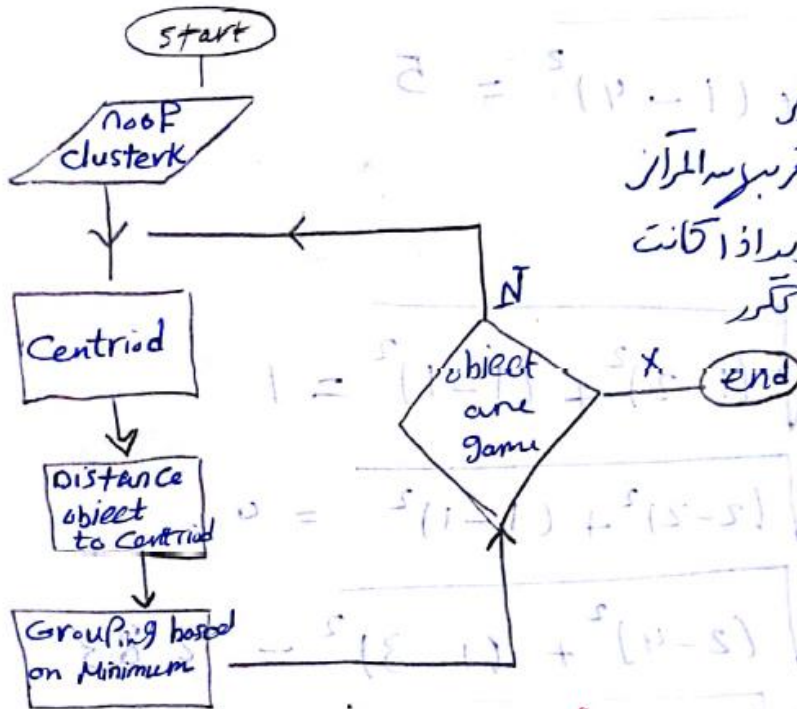 start
no of
cluster k
Centriod
Distance
object
to Centriod
Grouping based
on Minimum
N
object
are
game
X
end
(1 - 4)² = 5
المراكز
اذا كانت
تكرر
)² = 1
(2-2)² + (1-1)² =
(2-4)² + (1 3)²